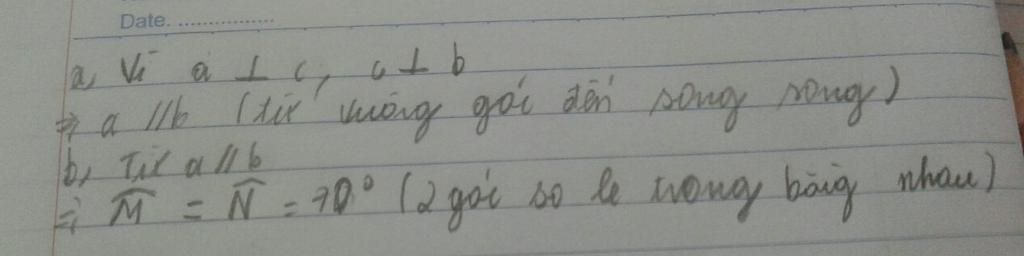 Date. ................
a, Vì a ⊥ c, c ⊥ b
=> a // b (từ vuông góc đến song song)
b, Từ a // b
=> M̂ = N̂ = 70° (2 góc so le trong bằng nhau)